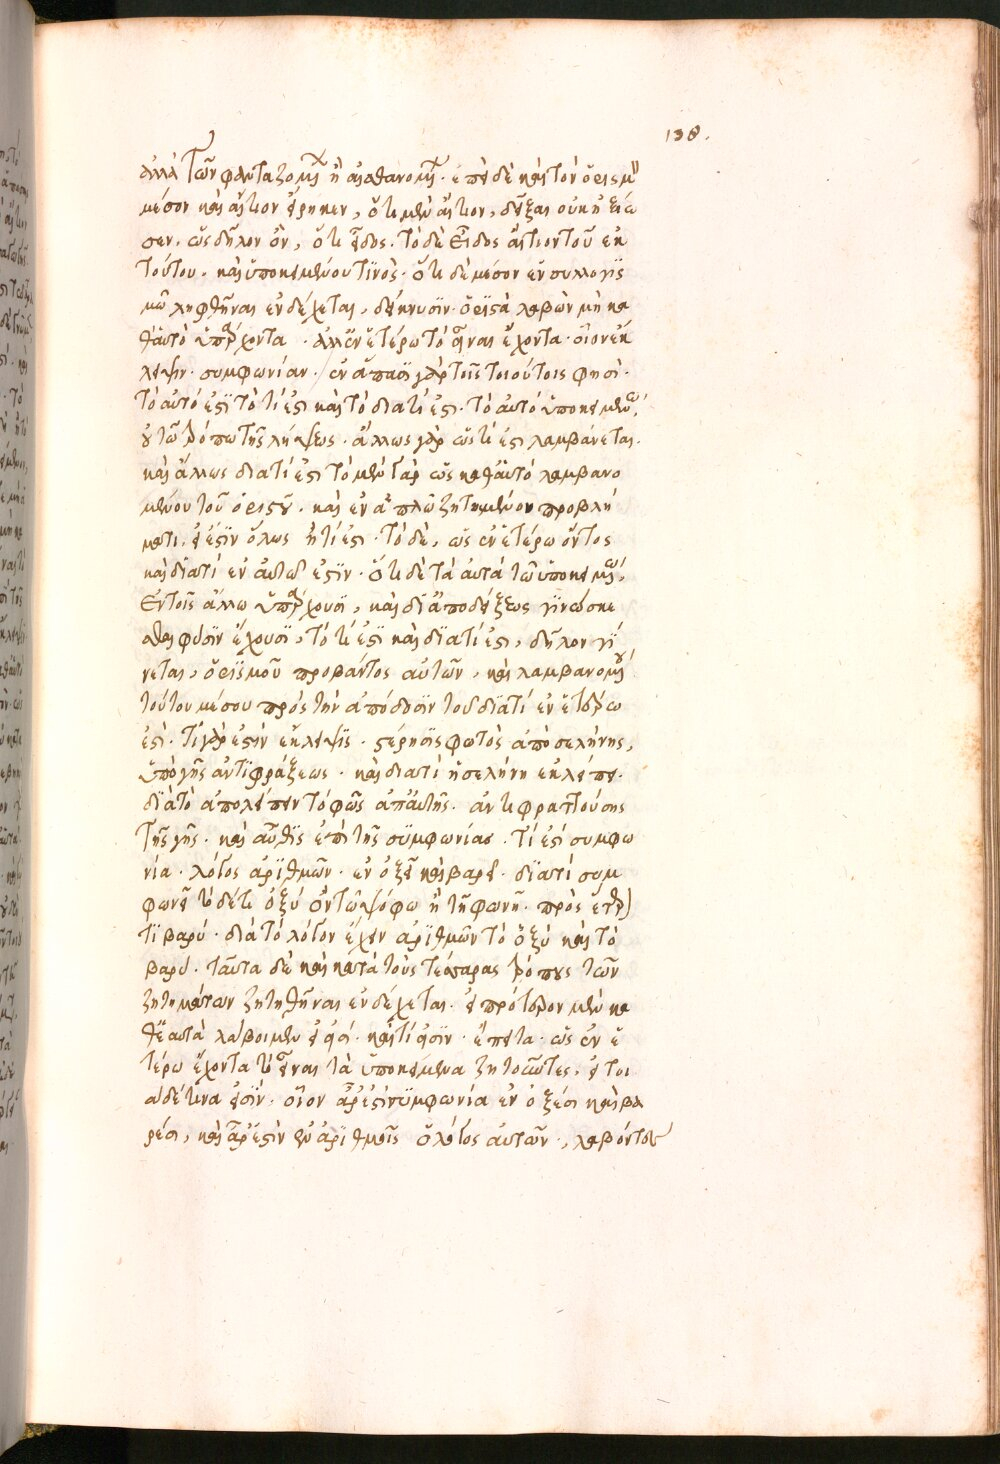 138.
ἀλλὰ τῶν φανταζομένων ἢ αἰσθανομένων· ἐπεὶ δὲ καὶ τὸν ὁρισμὸν
μέσον καὶ αἴτιον εἴρηκεν, ὅτι μὲν αἴτιον, δεῖξαι οὐκ ἠξίω
σεν. ὡς δῆλον ὂν, ὅτι εἶδος. τὸ δὲ εἶδος αἴτιον τοῦ ἐκ
τούτου. καὶ ὑποκειμένου τινὸς· ὅτι δὲ μέσον ἐν συλλογισ
μῶ ληφθῆναι ἐνδέχεται, δείκνυσιν· ὁρισὰ λαβὼν μὴ κα
θ᾽αὑτὸ ὑπάρχοντα · ἀλλ᾽ ἐν ἑτέρω τὸ εἶναι ἔχοντα· οἷον ἔκ
λειψιν· συμφωνίαν· ἐν ἅπασι γὰρ τοῖς τοιούτοις φησὶ·
τὸ αὐτό ἐστι τὸ τί ἐστι καὶ τὸ διατί ἐστι· τὸ αὐτό ὑποκειμένω,
οὐ τῶ τρόπω τῆς λήψεως· ἄλλως γὰρ ὡς τί ἐστι λαμβάνεται·
καὶ ἄλλως διατί ἐστι τὸ μὲν γὰρ ὡς καθ᾽αὑτό λαμβανο
μένου τοῦ ὁρισοῦ. καὶ ἐν ἁπλῶ ζητημένον προβλή
ματι. εἰ ἐστὶν ὅλως ἢ τί ἐστι· τὸ δὲ, ὡς ἐν ἑτέρω ὄντος
καὶ διατί ἐν αὐτῶ ἐστίν· ὅτι δὲ τὰ αὐτὰ τῶ ὑποκειμένω,
ἐν τοῖς ἄλλω ὑπάρχουσι, καὶ δι᾽ ἀποδείξεως γινώσκε
σθαι φύσιν ἔχουσι, τό τί ἐστι καὶ διατί ἐστι, δῆλον γί
νεται, ὁρισμοῦ προβάντος αὐτῶν, καὶ λαμβανομένου
τούτου μέσου πρὸς τὴν ἀπόδοσιν τοῦ διατί ἐν ἑτέρω
ἐστὶ· τί γάρ ἐστιν ἔκλειψις· στέρησις φωτὸς ἀπὸ σελήνης,
ὑπὸ γῆς ἀντιφράξεως· καὶ διατί ἡ σελήνη ἐκλείπει·
διὰ τὸ ἀπολείπειν τὸ φῶς ἀπ᾽ αὐτῆς· ἀντιφραττούσης
τῆς γῆς· καὶ αὖθις ἐπὶ τῆς συμφωνίας· τί ἐστι συμφω
νία· λόγος ἀριθμῶν· ἐν ὀξεῖ καὶ βαρεῖ· διατί συμ
φωνεῖ τόδε τι ὀξὺ ὂν τῶ ψόφω ἢ τῆ φωνῆ· πρὸς ἕτερόν
τι βαρύ· διὰ τὸ λόγον ἔχειν ἀριθμῶν τὸ ὀξὺ καὶ τὸ
βαρύ· ταῦτα δὲ καὶ κατὰ τοὺς τέσσαρας τρόπους τῶν
ζητημάτων ζητηθῆναι ἐνδέχεται· εἰ πρότερον μὲν κα
θ᾽ ἑαυτὰ λάβοιμεν εἰ ἐστί· καὶ τί ἐστιν· ἔπειτα· ὡς ἐν ἑ
τέρω ἔχοντα τὸ εἶναι τὰ ὑποκείμενα ζητοῦντες· εἴ τοι
αδέ τινα ἐστίν· οἷον ἆρά ἐστι συμφωνία ἐν ὀξέσι καὶ βα
ρέσι, καὶ ἆρά ἐστὶν ἐν ἀριθμοῖς ὁ λόγος αὐτῶν·, λαβόντες